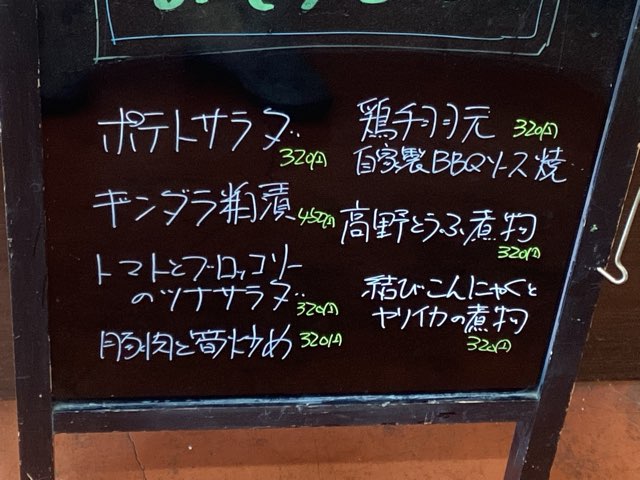 ポテトサラダ
320円
ギンダラ粕漬 450円
トマトとブロッコリー
のツナサラダ 320円
豚肉と筍炒め 320円
鶏手羽元 320円
自家製BBQソース焼
高野とうふ煮物
320円
結びこんにゃくと
ヤリイカの煮物
320円